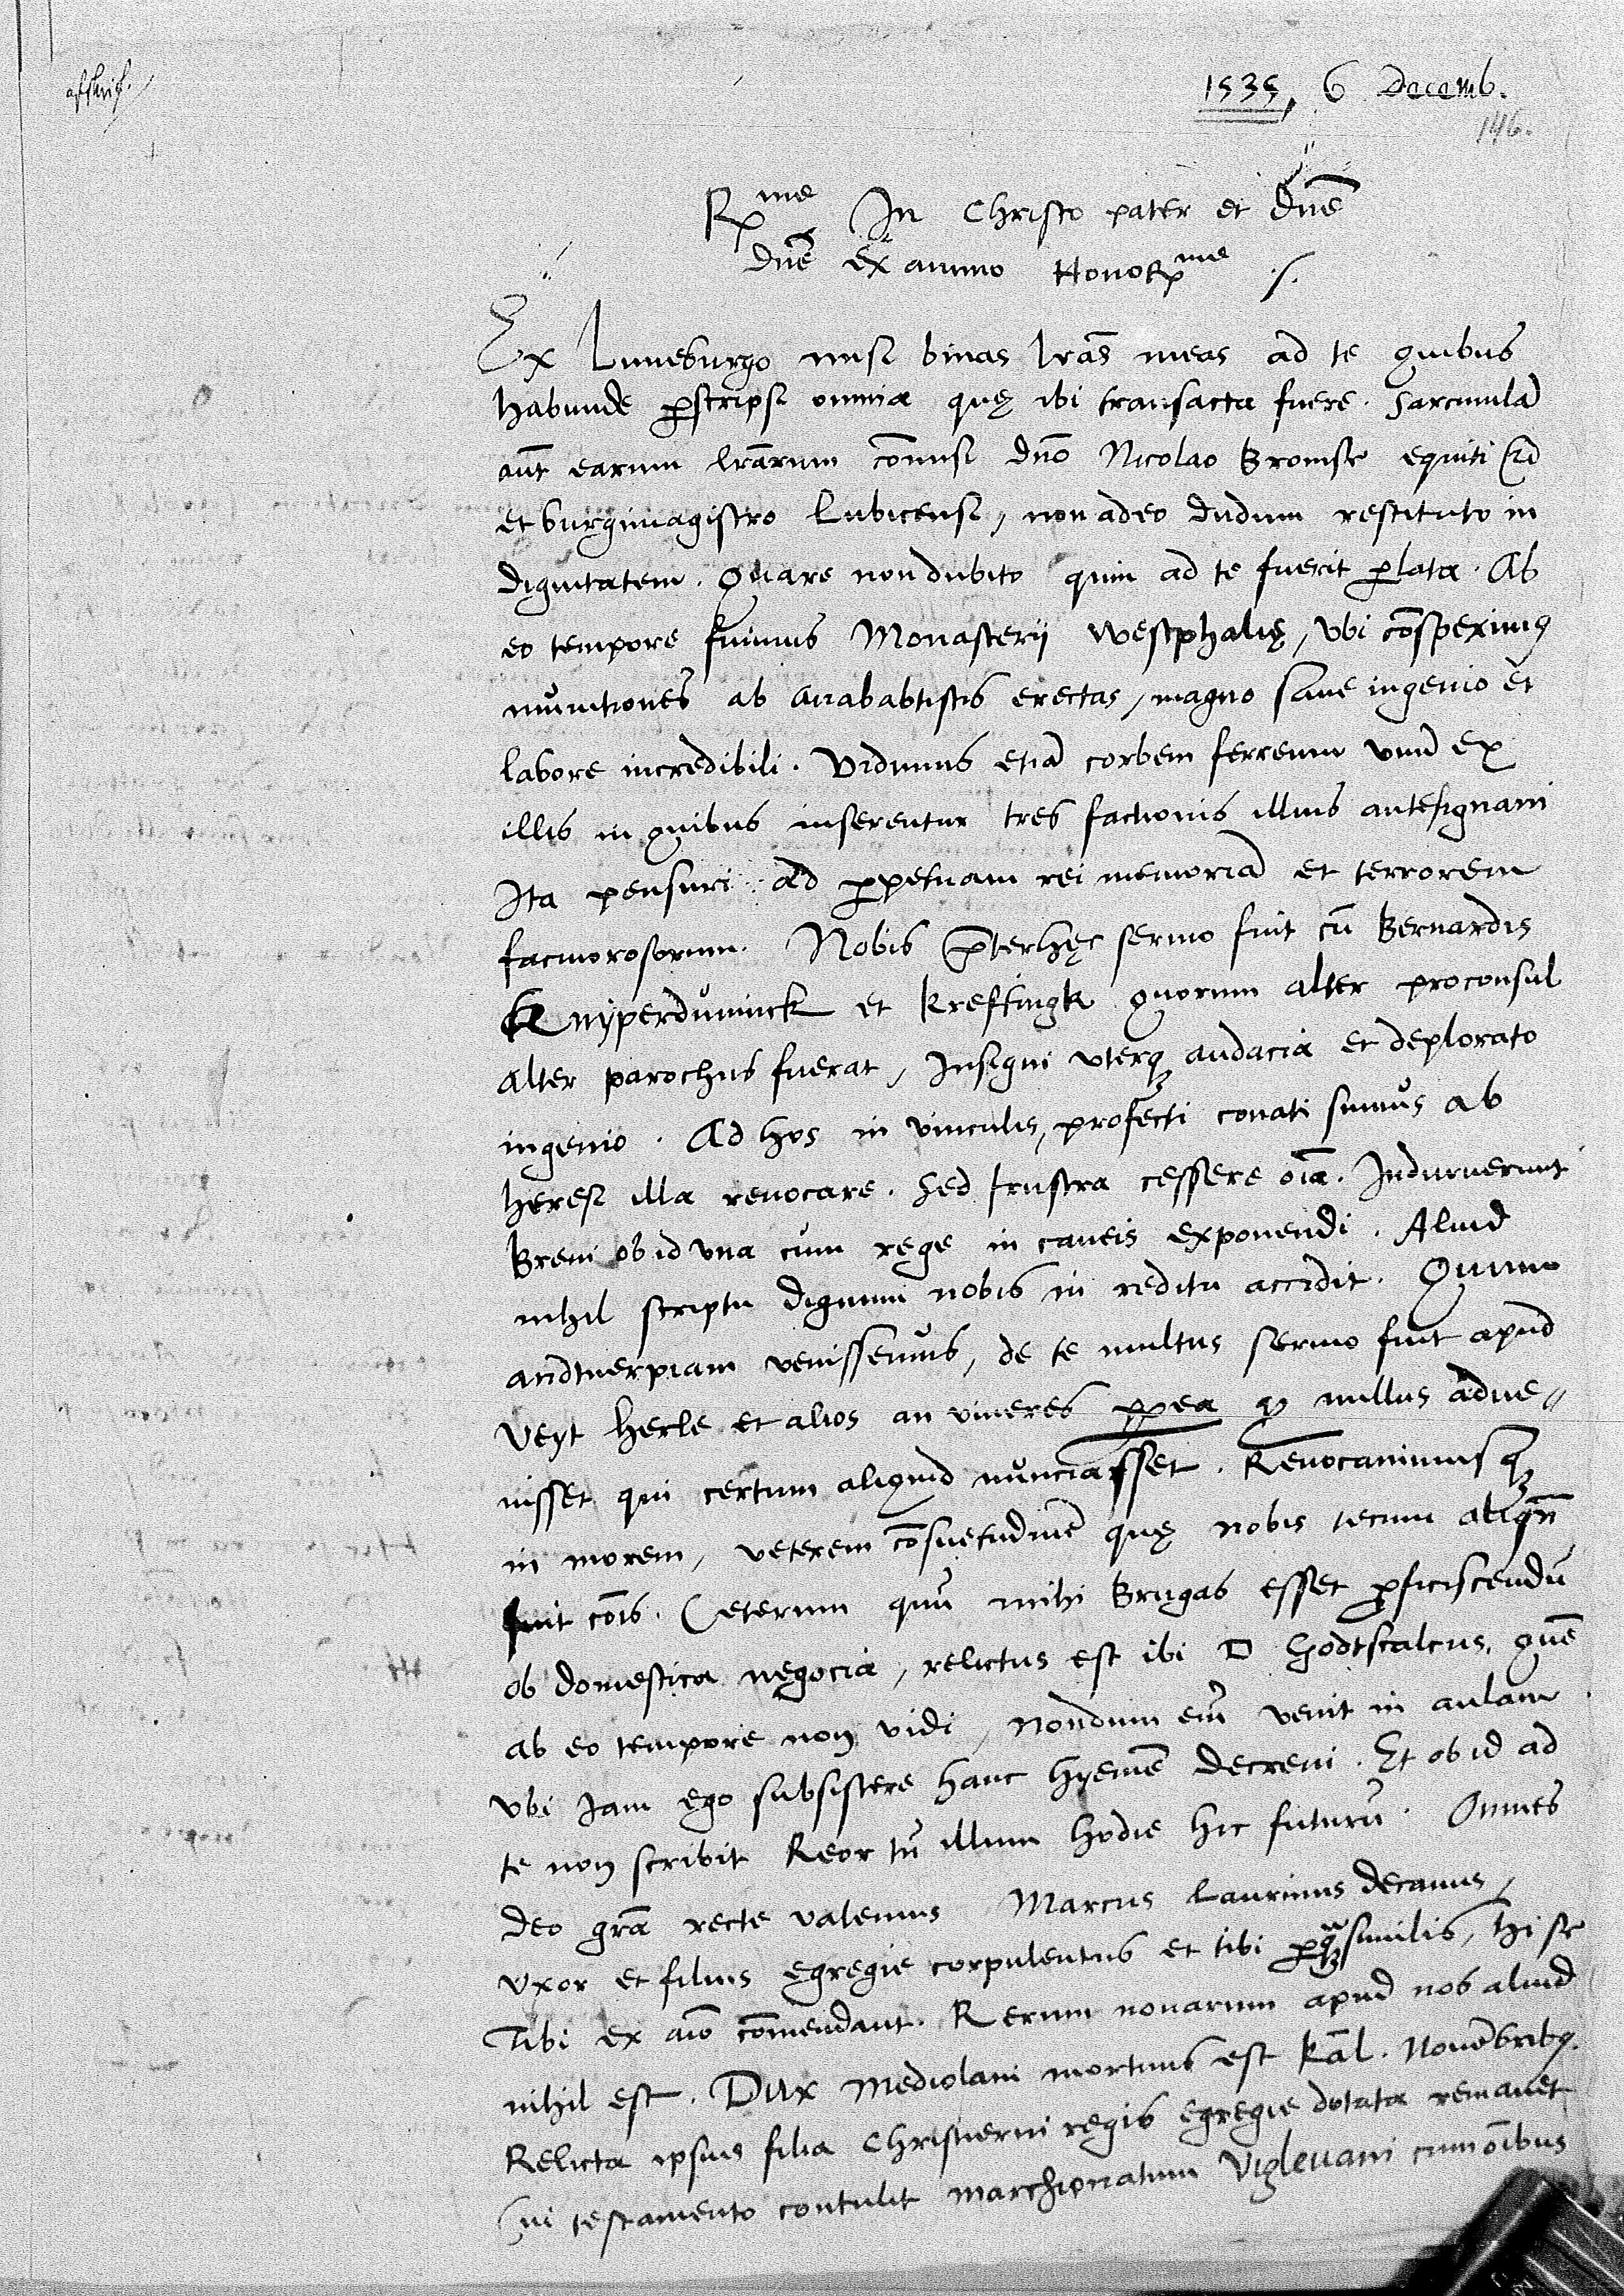 1535, 6 Decemb.
146.
Rme In Christo pater et dnē
dnē ex animo Honorme S.
Ex Luneburgo misi binas lrās meas ad te quibus
habunde pscripsi omnia quę ibi transacta fuere. Sarcinulā
aūt earum lrārum cōmisi dnō Nicolao Bromse equiti
et burgimagistro Lubicensi, non adeo dudum restituto in
dignitatem. Quare non dubito quin ad te fuerit plata. Ab
eo tempore fuimus Monasterij Westphalię, vbi cōspeximus
munitiones ab Anababtistis erectas, magno sane ingenio et
labore incredibili. Vidimus etiā corbem ferreum vnū ex
illis in quibus inserentur tres factionis illius antesignani
Ita pensuri ad ppetuam rei memoriā et terrorem
facinorosorum. Nobis pterhęc sermo fuit cū Bernardis
Knyperduninck et Kreftingk quorum alter proconsul
alter parochus fuerat, Insigni vterq audacia et deplorato
ingenio. Ad hos in vinculis, profecti conati sumus ab
heresi illa reuocare. Sed frustra cessere oīa. Induruerunt
Breui ob id vna cum rege in caueis exponendi. Aliud
nihil scriptu dignum nobis in reditu accidit. Quum
andtuerpiam venissemus, de te multus sermo fuit apud
Veyt Herle et alios an viueres ppea q nullus adue-
nisset qui certum aliquid nunciasset. Reuocauimusq
in morem, veterem cōsuetudinē quę nobis tecum aliqn̄
fuit cōis. Ceterum quū mihi Brugas esset pficiscendū
ob domestica negocia, relictus est ibi D Godtscalcus, quē
ab eo tempore non vidi, Nondum enī venit in aulam
vbi Jam ego subsistere hanc hyemē decreui. Et ob id ad
te non scribit Reor tn̄ illum hodie hic futurū. Omnes
deo grā recte valemus Marcus Laurinus decanus,
vxor et filius egregie corpulentus et tibi pq similis, Hi se
Tibi ex aīo cōmendant. Rerum nouarum apud nos aliud
nihil est. Dux Mediolani mortuus est Kal. Nouēbribq.
Relicta ipsius filia Christierni regis egregie dotata remanet
Cui testamento contulit marchionatum Viglevani cum oībus